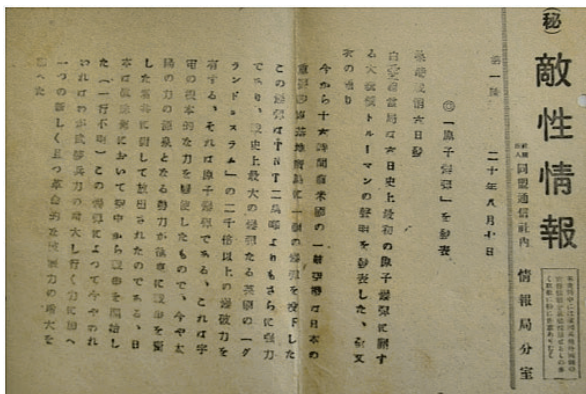 (秘)
敵性情報
社団法人 同盟通信社内 情報局分室
二十年八月十日
◎「原子爆弾」を発表
六日発
白堊館当局は六日史上最初の原子爆弾に関す
る大統領トルーマンの声明を発表した、全文
次の通り
今から十六時間前米国の一航空機は日本の
に一個の爆弾を投下した
この爆弾はＴＮＴ二万噸よりもさらに強力
であり、戦史上最大の爆弾たる英国の「グ
ランドスラム」の二千倍以上の爆破力を
有する、それは原子爆弾である、これは宇
宙の根本的な力を駆使したもので、今や太
陽の力の源泉となる動力が極東に戦争を齎
した者共に対して放出されたのである、日
本は真珠湾において空中から戦争を開始し
た（一行不明）この爆弾によつて今やわれ
われはわが武装兵力の増大し行く力に加へ
一つの新しく且つ革命的な破壊力の増大を
加へた